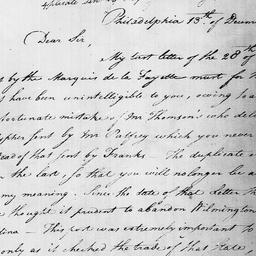 Philadelphia 13th of Decem
Dear Sir,
My last letter of the 28th of
by the Marquis de la Fayette must for
have been unintelligible to you, owing to a
portunate mistake of Mr Thomson's who del
ypher sent by Mr Palfrey which you never
ead of that sent by Franks — The duplicate
the last, so that you will no longer be a
my meaning. Since the date of that Letter
thought it prudent to abandon Wilmington
lina — This post was extremely important to
only as it checked the trade of that State,